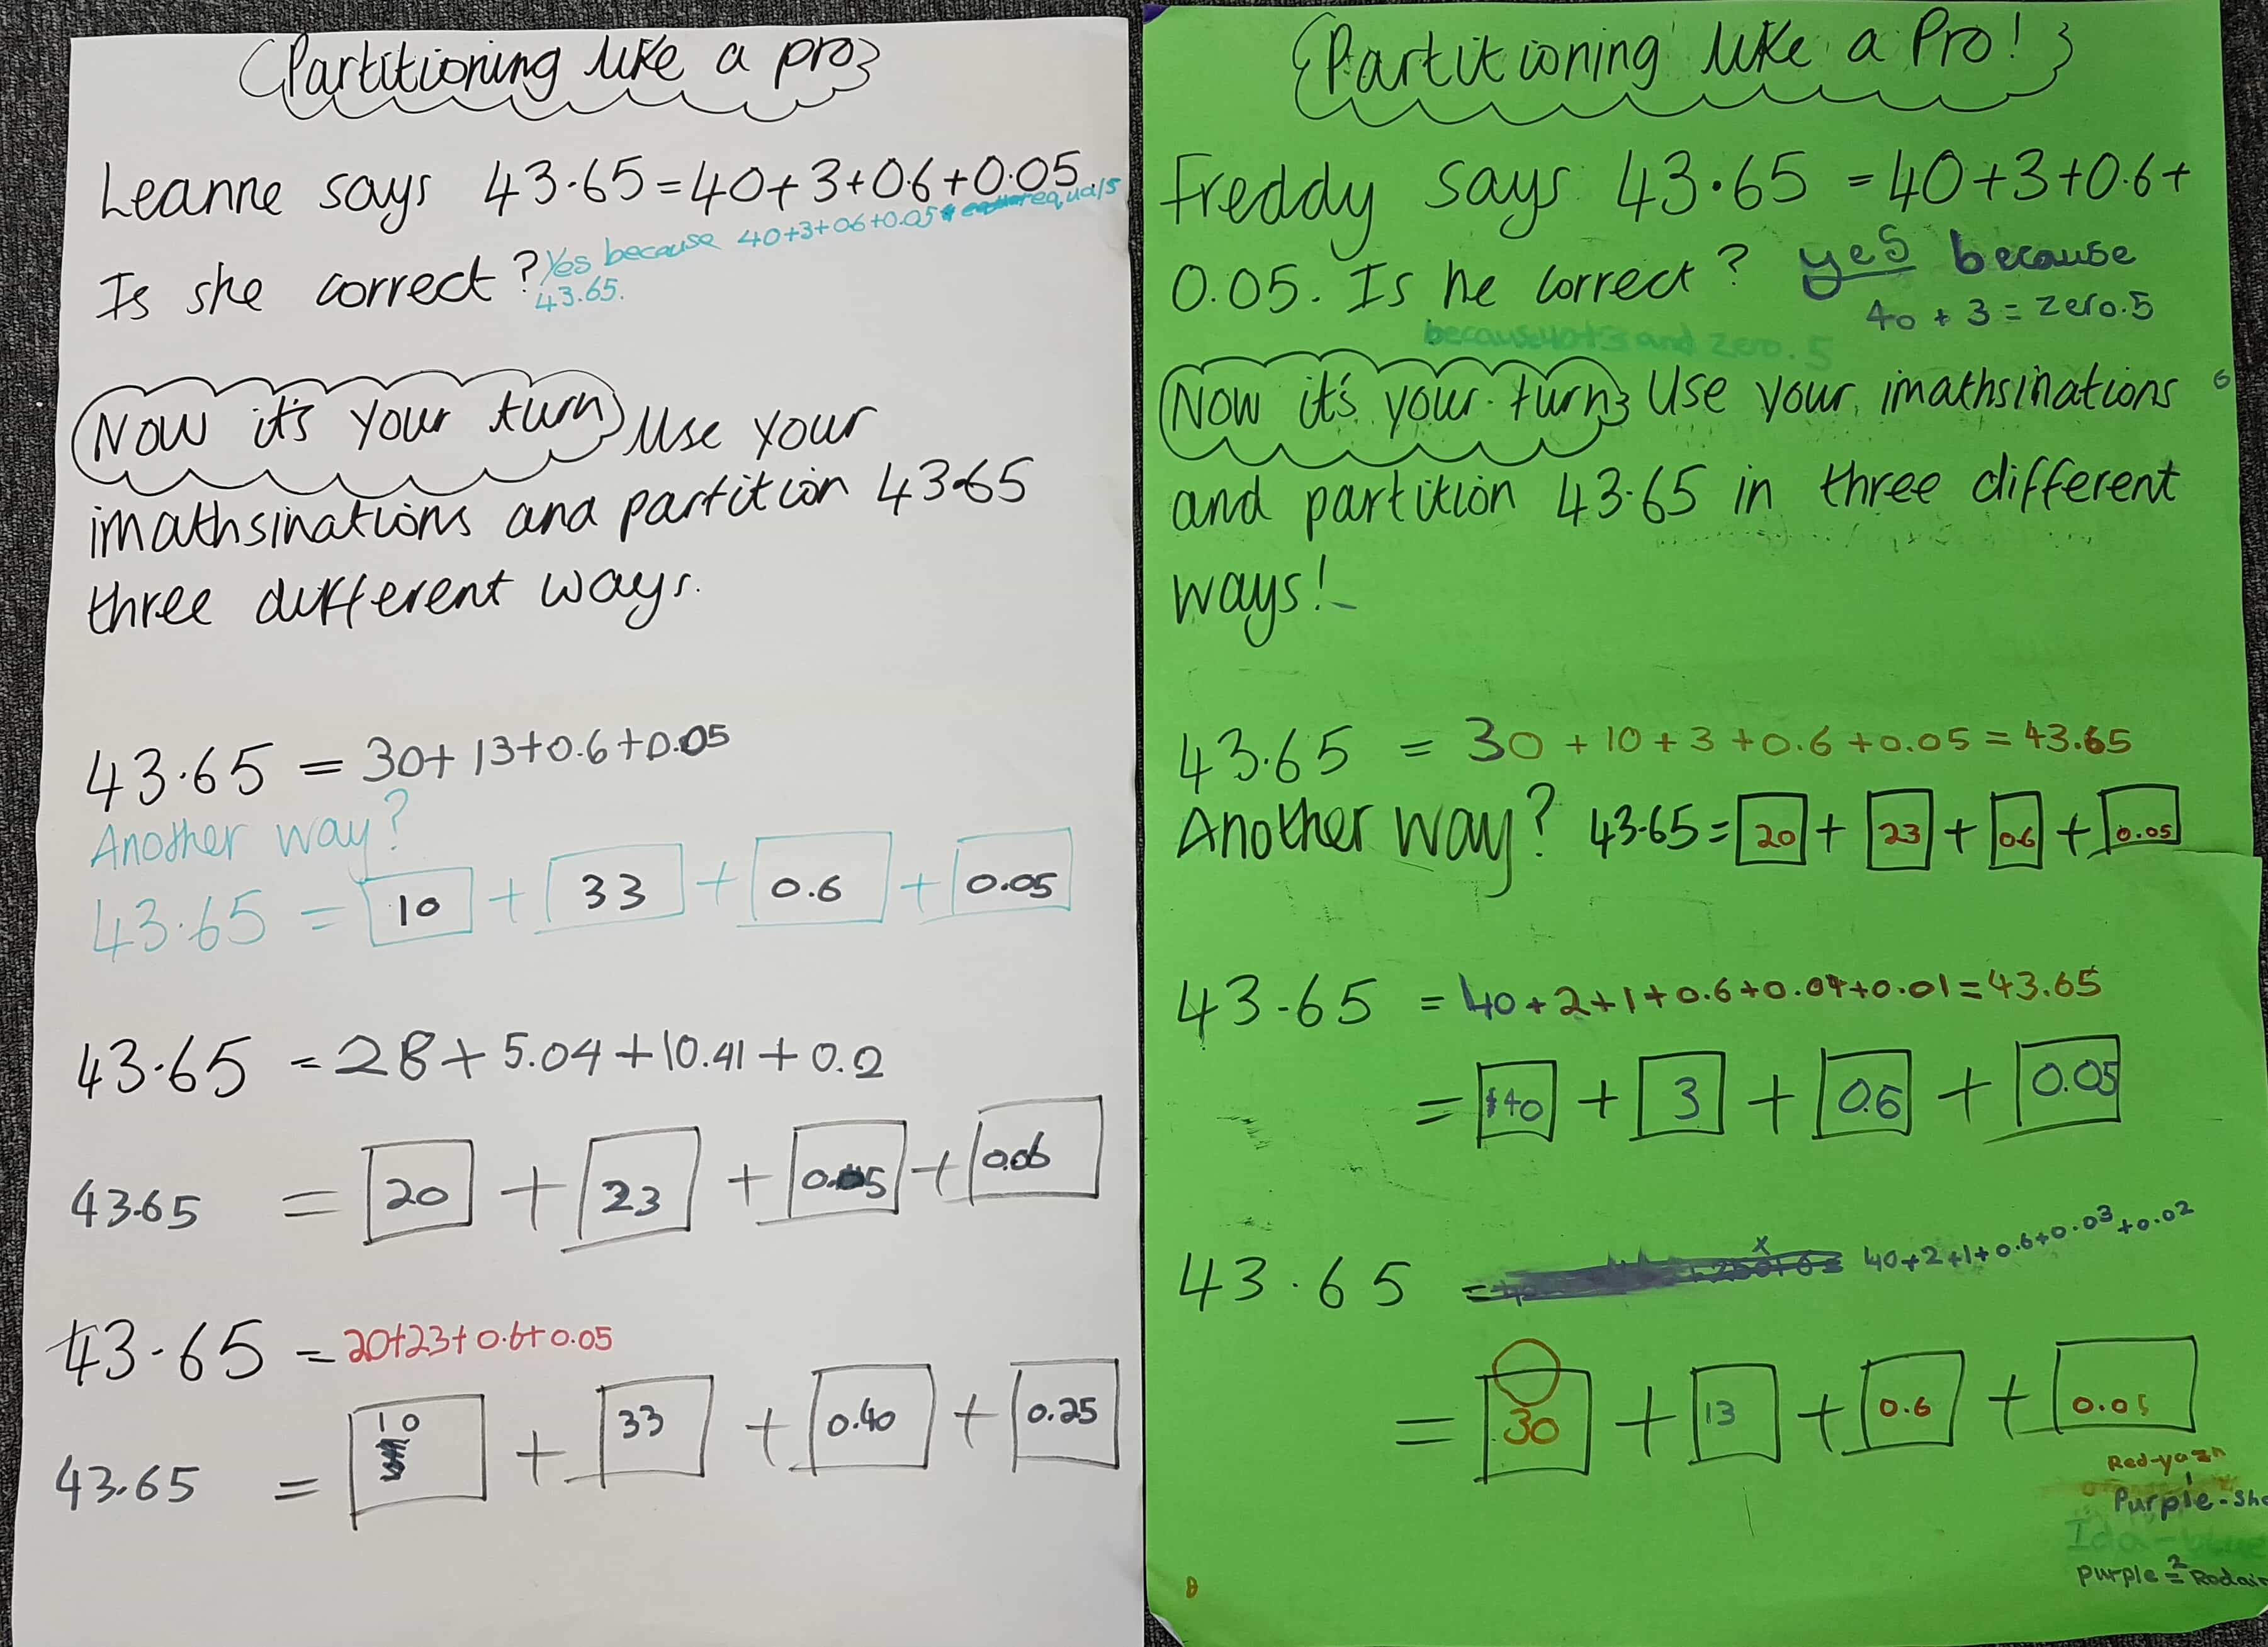 Partitioning like a pro
Leanne says 43.65=40+3+0.6+0.05
Is she correct? Yes because 40+3+06+0.05 equals
43.65.
Now it's your turn Use your
imathsinations and partition 43.65
three different ways.
43.65 = 30+13+0.6+0.05
Another way?
43.65 = 10 + 33 + 0.6 + 0.05
43.65 = 28+5.04+10.41+0.2
43.65 = 20 + 23 + 0. 5 + 0.06
43.65 = 20+23+0.6+0.05
43.65 = 10 + 33 + 0.40 + 0.25
Partitioning like a Pro!
Freddy says 43.65 = 40+3+0.6+
0.05. Is he correct? yes because
40 + 3 = zero.5
because 40+3 and zero.5
Now it's your turn Use your imathsinations
and partition 43.65 in three different
ways!
43.65 = 30 + 10 + 3 + 0.6 + 0.05 = 43.65
Another way? 43.65 = 20 + 23 + 0.6 + 0.05
43.65 = 40+2+1+0.6+0.04+0.01=43.65
= 40 + 3 + 0.6 + 0.05
43.65 = 40+2+1+0.6+0.03+0.02
= 30 + 13 + 0.6 + 0.05
Red-yazn
Purple - Sho
Ida - blue
Purple 2 = Rodain